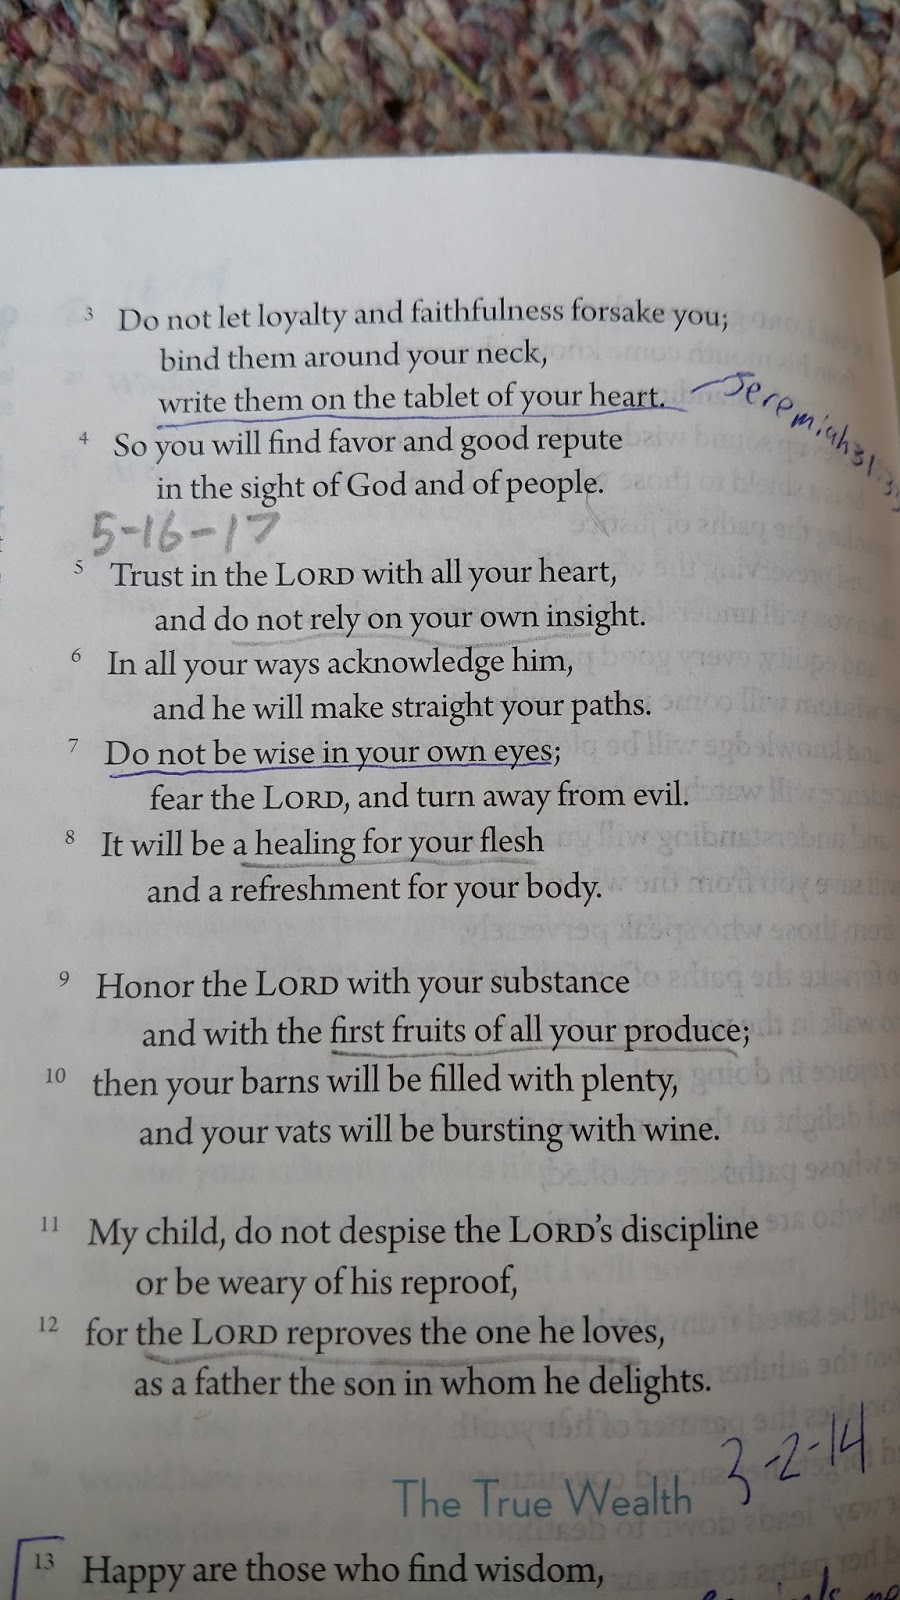 3 Do not let loyalty and faithfulness forsake you;
bind them around your neck,
write them on the tablet of your heart. Jeremiah 31:33
4 So you will find favor and good repute
in the sight of God and of people.
5-16-17
5 Trust in the LORD with all your heart,
and do not rely on your own insight.
6 In all your ways acknowledge him,
and he will make straight your paths.
7 Do not be wise in your own eyes;
fear the LORD, and turn away from evil.
8 It will be a healing for your flesh
and a refreshment for your body.
9 Honor the LORD with your substance
and with the first fruits of all your produce;
10 then your barns will be filled with plenty,
and your vats will be bursting with wine.
11 My child, do not despise the LORD's discipline
or be weary of his reproof,
12 for the LORD reproves the one he loves,
as a father the son in whom he delights.
3-2-14
The True Wealth
13 Happy are those who find wisdom,